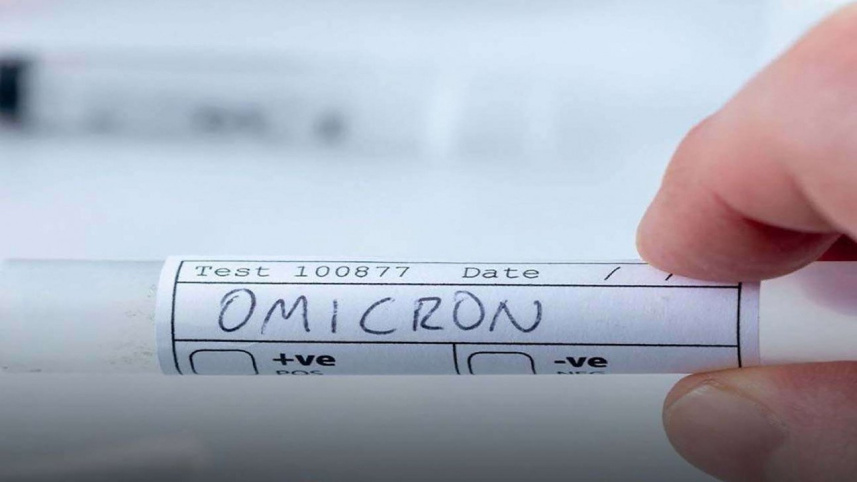 Test 100877 Date / /
OMICRON
+ve -ve
POS NEG